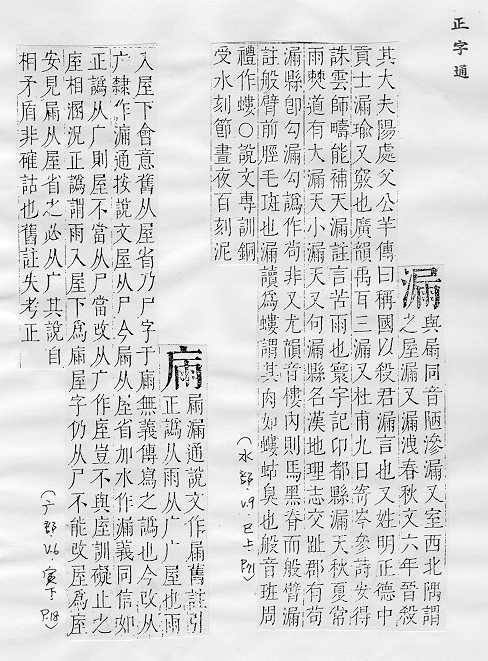 正字通
漏
與屚同音陋滲漏又室西北隅謂
之屋漏又漏洩春秋文六年晉殺
其大夫陽處父公羊傳曰稱國以殺君漏言也又姓明正德中
貢士漏瑜又竅也廣韻禹耳三漏又杜甫九日寄岑參詩安得
誅雲師疇能補天漏註言苦雨也寰宇記卭都縣漏天秋夏常
雨僰道有大漏天小漏天又句漏縣名漢地理志交趾郡有茍
漏縣卽勾漏勾譌作茍非又尤韻音樓內則馬黑脊而般臂漏
註般臂前脛毛斑也漏讀爲螻謂其肉如螻蛄臭也般音班周
禮作螻○說文專訓銅
受水刻節晝夜百刻泥
(水部 V.9. 巳上 P.91)
㡴
屚漏通說文作屚舊註引
正譌从雨从广广屋也雨
入屋下會意舊从屋省乃尸字于㡴無義傳寫之譌也今改从
广隸作漏通按說文屋从尸今屚从屋省加水作漏義同信如
正譌从广則屋不當从尸當改从广作庢豈不與庢訓礙止之
庢相溷況正譌謂雨入屋下爲㡴屋字仍从尸不能改屋爲庢
安見屚从屋省之必从广其說自
相矛盾非確詁也舊註失考正
(广部 V.6 寅下 P.18)